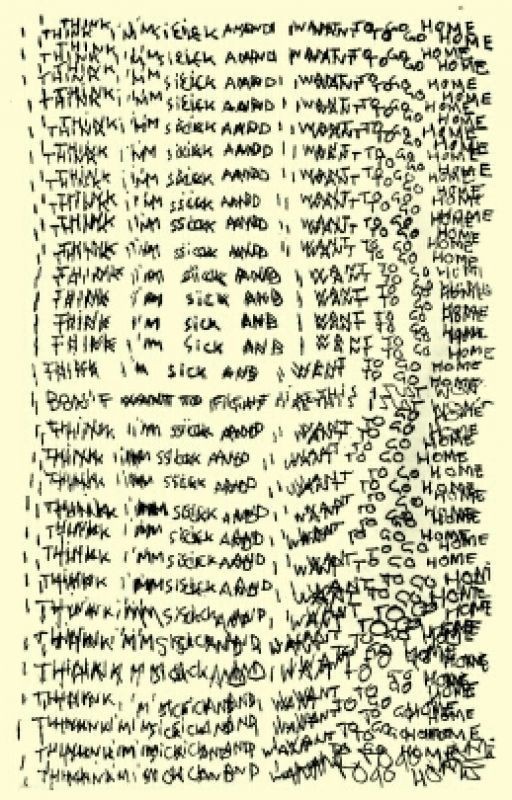 I THINK I'M SICK AND I WANT TO GO HOME
I THINK I'M SICK AND I WANT TO GO HOME
I THINK I'M SICK AND I WANT TO GO HOME
I THINK I'M SICK AND I WANT TO GO HOME
I THINK I'M SICK AND I WANT TO GO HOME
I THINK I'M SICK AND I WANT TO GO HOME
I THINK I'M SICK AND I WANT TO GO HOME
I THINK I'M SICK AND I WANT TO GO HOME
I THINK I'M SICK AND I WANT TO GO HOME
I THINK I'M SICK AND I WANT TO GO HOME
I THINK I'M SICK AND I WANT TO GO HOME
I THINK I'M SICK AND I WANT TO GO HOME
I THINK I'M SICK AND I WANT TO GO HOME
I THINK I'M SICK AND I WANT TO GO HOME
I THINK I'M SICK AND I WANT TO GO HOME
I DON'T WANT TO FIGHT THIS
I THINK I'M SICK AND I WANT TO GO HOME
I THINK I'M SICK AND I WANT TO GO HOME
I THINK I'M SICK AND I WANT TO GO HOME
I THINK I'M SICK AND I WANT TO GO HOME
I THINK I'M SICK AND I WANT TO GO HOME
I THINK I'M SICK AND I WANT TO GO HOME
I THINK I'M SICK AND I WANT TO GO HOME
I THINK I'M SICK AND I WANT TO GO HOME
I THINK I'M SICK AND I WANT TO GO HOME
I THINK I'M SICK AND I WANT TO GO HOME
I THINK I'M SICK AND I WANT TO GO HOME
I THINK I'M SICK AND I WANT TO GO HOME
I THINK I'M SICK AND I WANT TO GO HOME
I THINK I'M SICK AND I WANT TO GO HOME